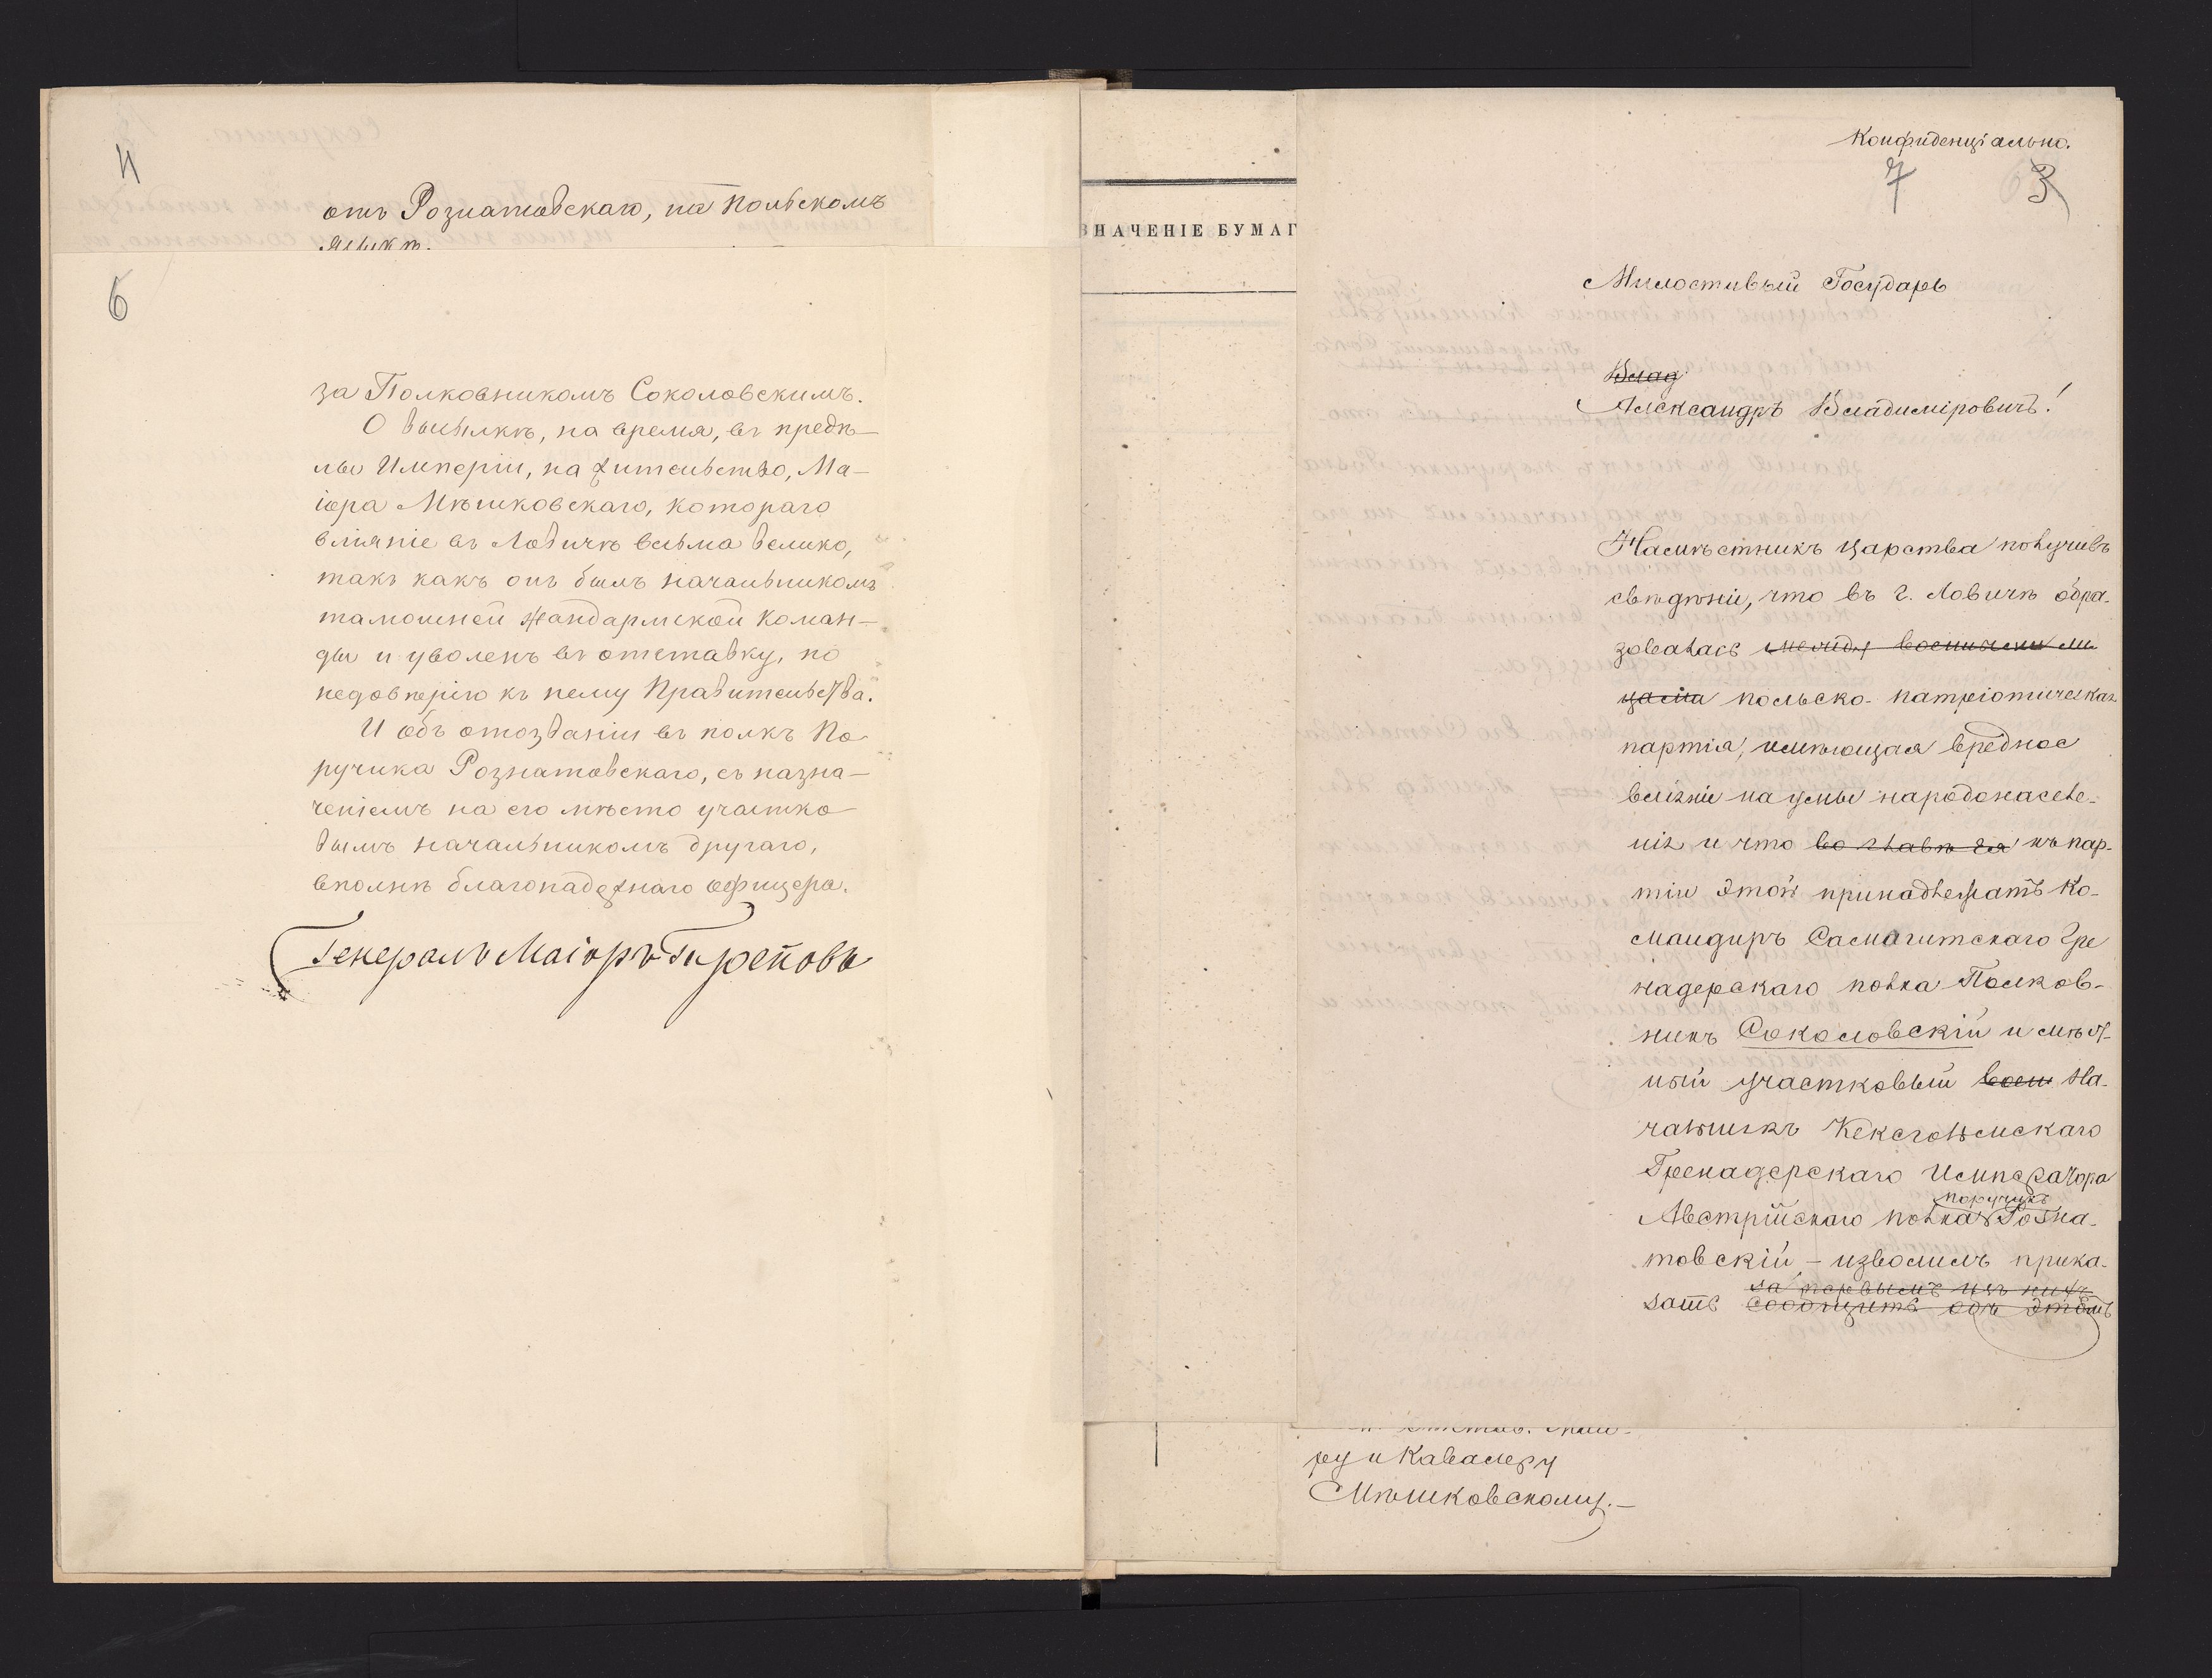 4
отъ Розматовскаго, на Польскомъ
языкѣ.
6
за Полковникомъ Соколовскимъ.
О высылкѣ, на время, въ предѣ—
лы Имперіи, на жительство, Ма—
іора Мѣшковскаго, котораго
вліяніе въ Ловичѣ весьма велико,
такъ какъ онъ былъ начальникомъ
тамошней жандармской коман—
ды и уволенъ въ отставку, по
недовѣрію къ нему Правительства.
И объ отозваніи въ полкъ По
ручика Розматовскаго, съ назна—
ченіемъ на его мѣсто участко
вымъ начальникомъ другаго,
вполнѣ благонадежнаго офицера.
Генералъ Маіоръ Треповъ
ЗНАЧЕНІЕ БУМАГ
Конфиденціально.
7 3
Милостивый Государь
Влад
Александръ Владиміровичъ!
Намѣстникъ Царства получивъ
свѣдѣніи, что въ г. Ловичѣ обра-
зовалась между военными ли
цами польско-патріотическая
партія, имѣющая вредное
вліяніе на умы народонаселе-
нія и что во главѣ ея къ пар-
тіи этой принадлежатъ Ко-
мандиръ Самогитскаго Гре
надерскаго полка Полков-
никъ Соколовскій и мѣст-
ный участковый воен На-
чальникъ Кексгольмскаго
Гренадерскаго Императора
поручикъ
Австрійскаго полка Розма-
товскій, - изволилъ прика-
за первымъ изъ нихъ
зать сообщить объ этомъ
ру и Кавалеру
Мѣшковскому.—